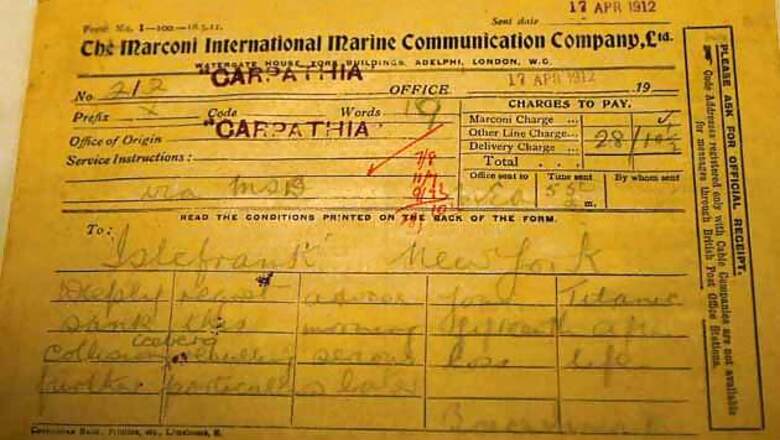 17 APR 1912
Form No. 1—100—18.5.11. Sent date
The Marconi International Marine Communication Company, Ltd.
WATERGATE HOUSE, YORK BUILDINGS, ADELPHI, LONDON, W.C.
"CARPATHIA
No 212 OFFICE 17 APR 1912 19
Prefix Code Words 19
CHARGES TO PAY.
"CARPATHIA"
Office of Origin
Service Instructions:
via MSD
Marconi Charge
Other Line Charge... 28/10½
Delivery Charge
Total
Office sent to Time sent By whom sent
m.
READ THE CONDITIONS PRINTED ON THE BACK OF THE FORM.
To:
"Islefrank" New York
Deeply regret advise you Titanic
sank this morning fifteenth after
collision iceberg resulting serious loss life
further particulars later
PLEASE ASK FOR OFFICIAL RECEIPT.
Code Addresses registered only with Cable Companies are not available
for messages through British Post Office Stations.